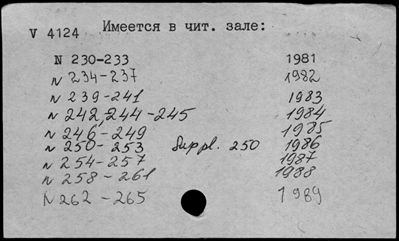 V 4124 Имеется в чит. зале:
N 230-233 1981
N 234-237 1982
N 239-241 1983
N 242, 244-245 1984
N 246, -249 1985
N 250- 253 Suppl. 250 1986
N 254-257 1987
N 258-261 1988
N 262-265 1989